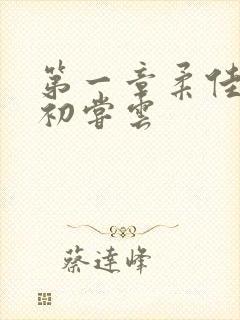 第一章柔佳
初尝云
蔡達峰